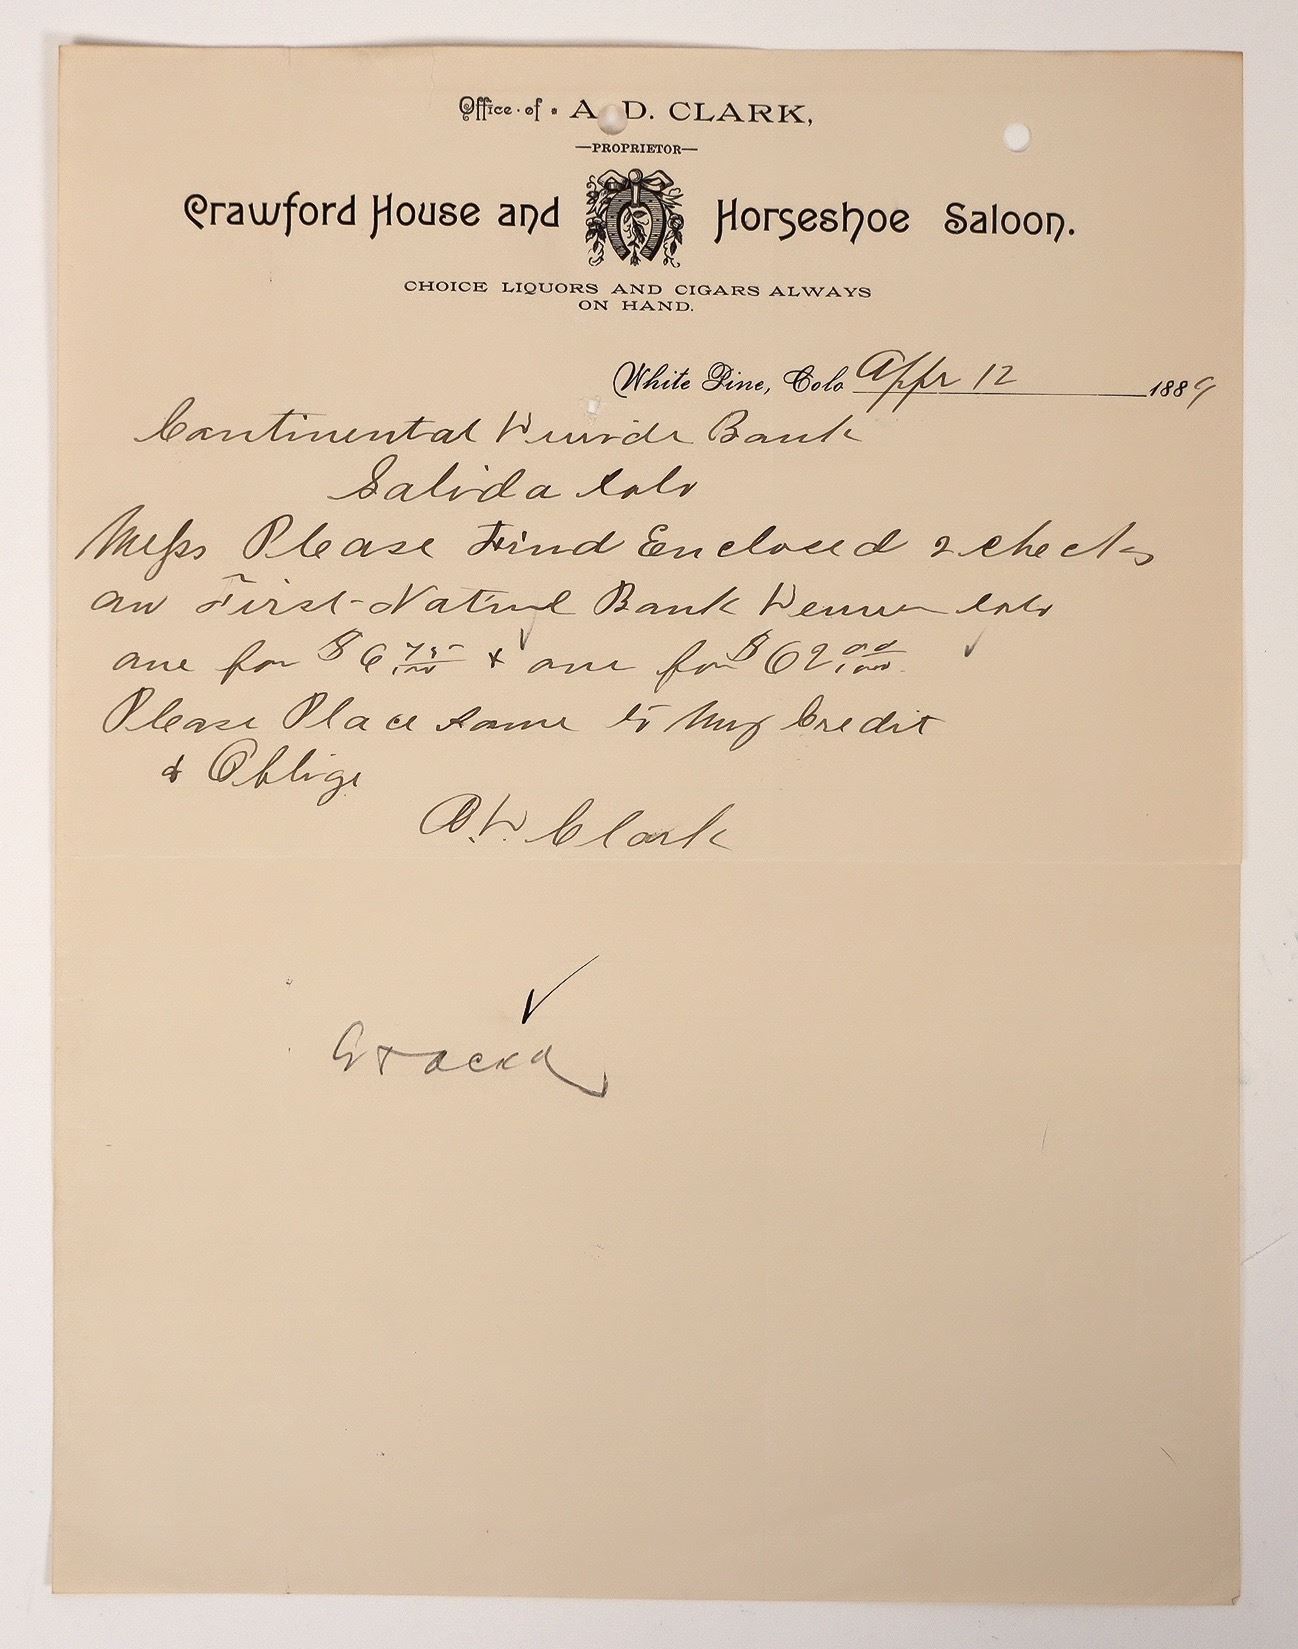 Office of A. D. CLARK,
—PROPRIETOR—
Crawford House and Horseshoe Saloon.
CHOICE LIQUORS AND CIGARS ALWAYS
ON HAND.
White Pine, Colo Appr 12 1889
Continental Divide Bank
Salida Colo
Mess Please Find Enclosed 2 checks
on First Bank Denver Colo
one for $6 75/100 & one for $62 00/100.
Please Place same to my Credit
& Oblige
A. D. Clark